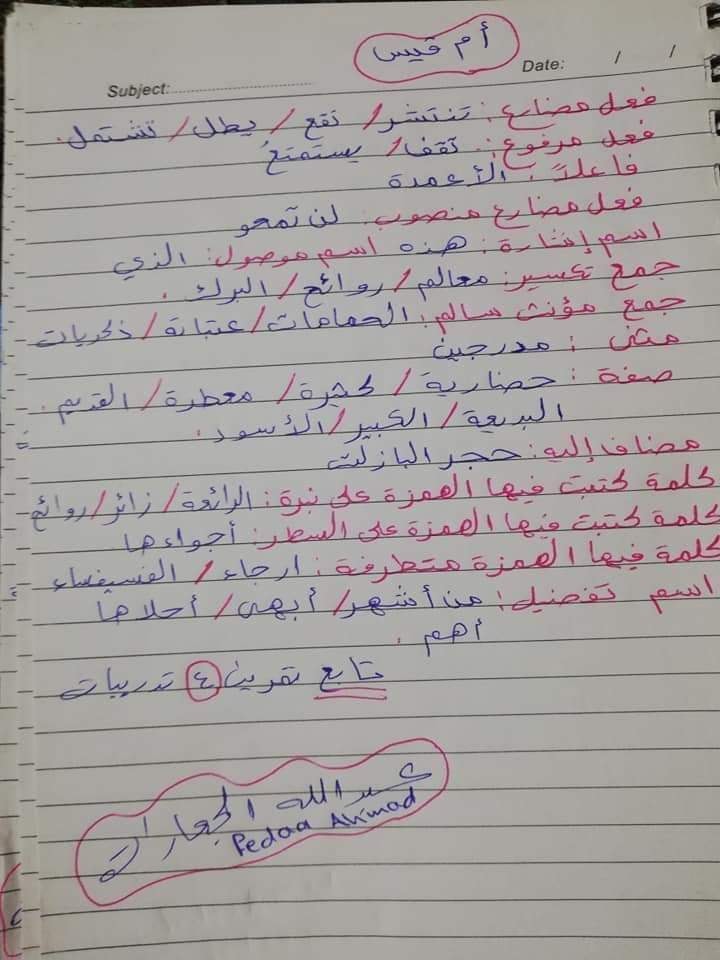 أم قيس
Subject: Date: / /
فعل مضارع: تنتشر/ تقع / يطل/ تشتمل.
فعل مرفوع: تقف/ يستمتعُ
فاعلاً: الأعمدة
فعل مضارع منصوب: لن تمحو
اسم إشارة: هذه اسم موصول: الذي
جمع تكسير: معالم/ روائح/ البرك.
جمع مؤنث سالم: الحمامات/ عتباته/ ذكريات
مثنى: مدرجين
صفة: حضارية/ كثيرة/ معطرة/ القديم.
البديعة/ الكبير/ الأسود.
مضاف إليه: حجر البازلت
كلمة كتبت فيها الهمزة على نبرة: الرائعة/ زائر/ روائح
كلمة كتبت فيها الهمزة على السطر: أجواءها
كلمة فيها الهمزة متطرفة: ارجاء/ الفسيفساء
اسم تفضيل: من أشهر/ أبهى/ أحلاها
أهم.
تابع تمرين ٤ تدريبات
عبدالله الحجارات
Fedaa Ahmad